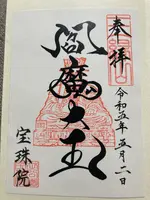 奉拝
令和五年五月二日
閻魔大王
宝珠院